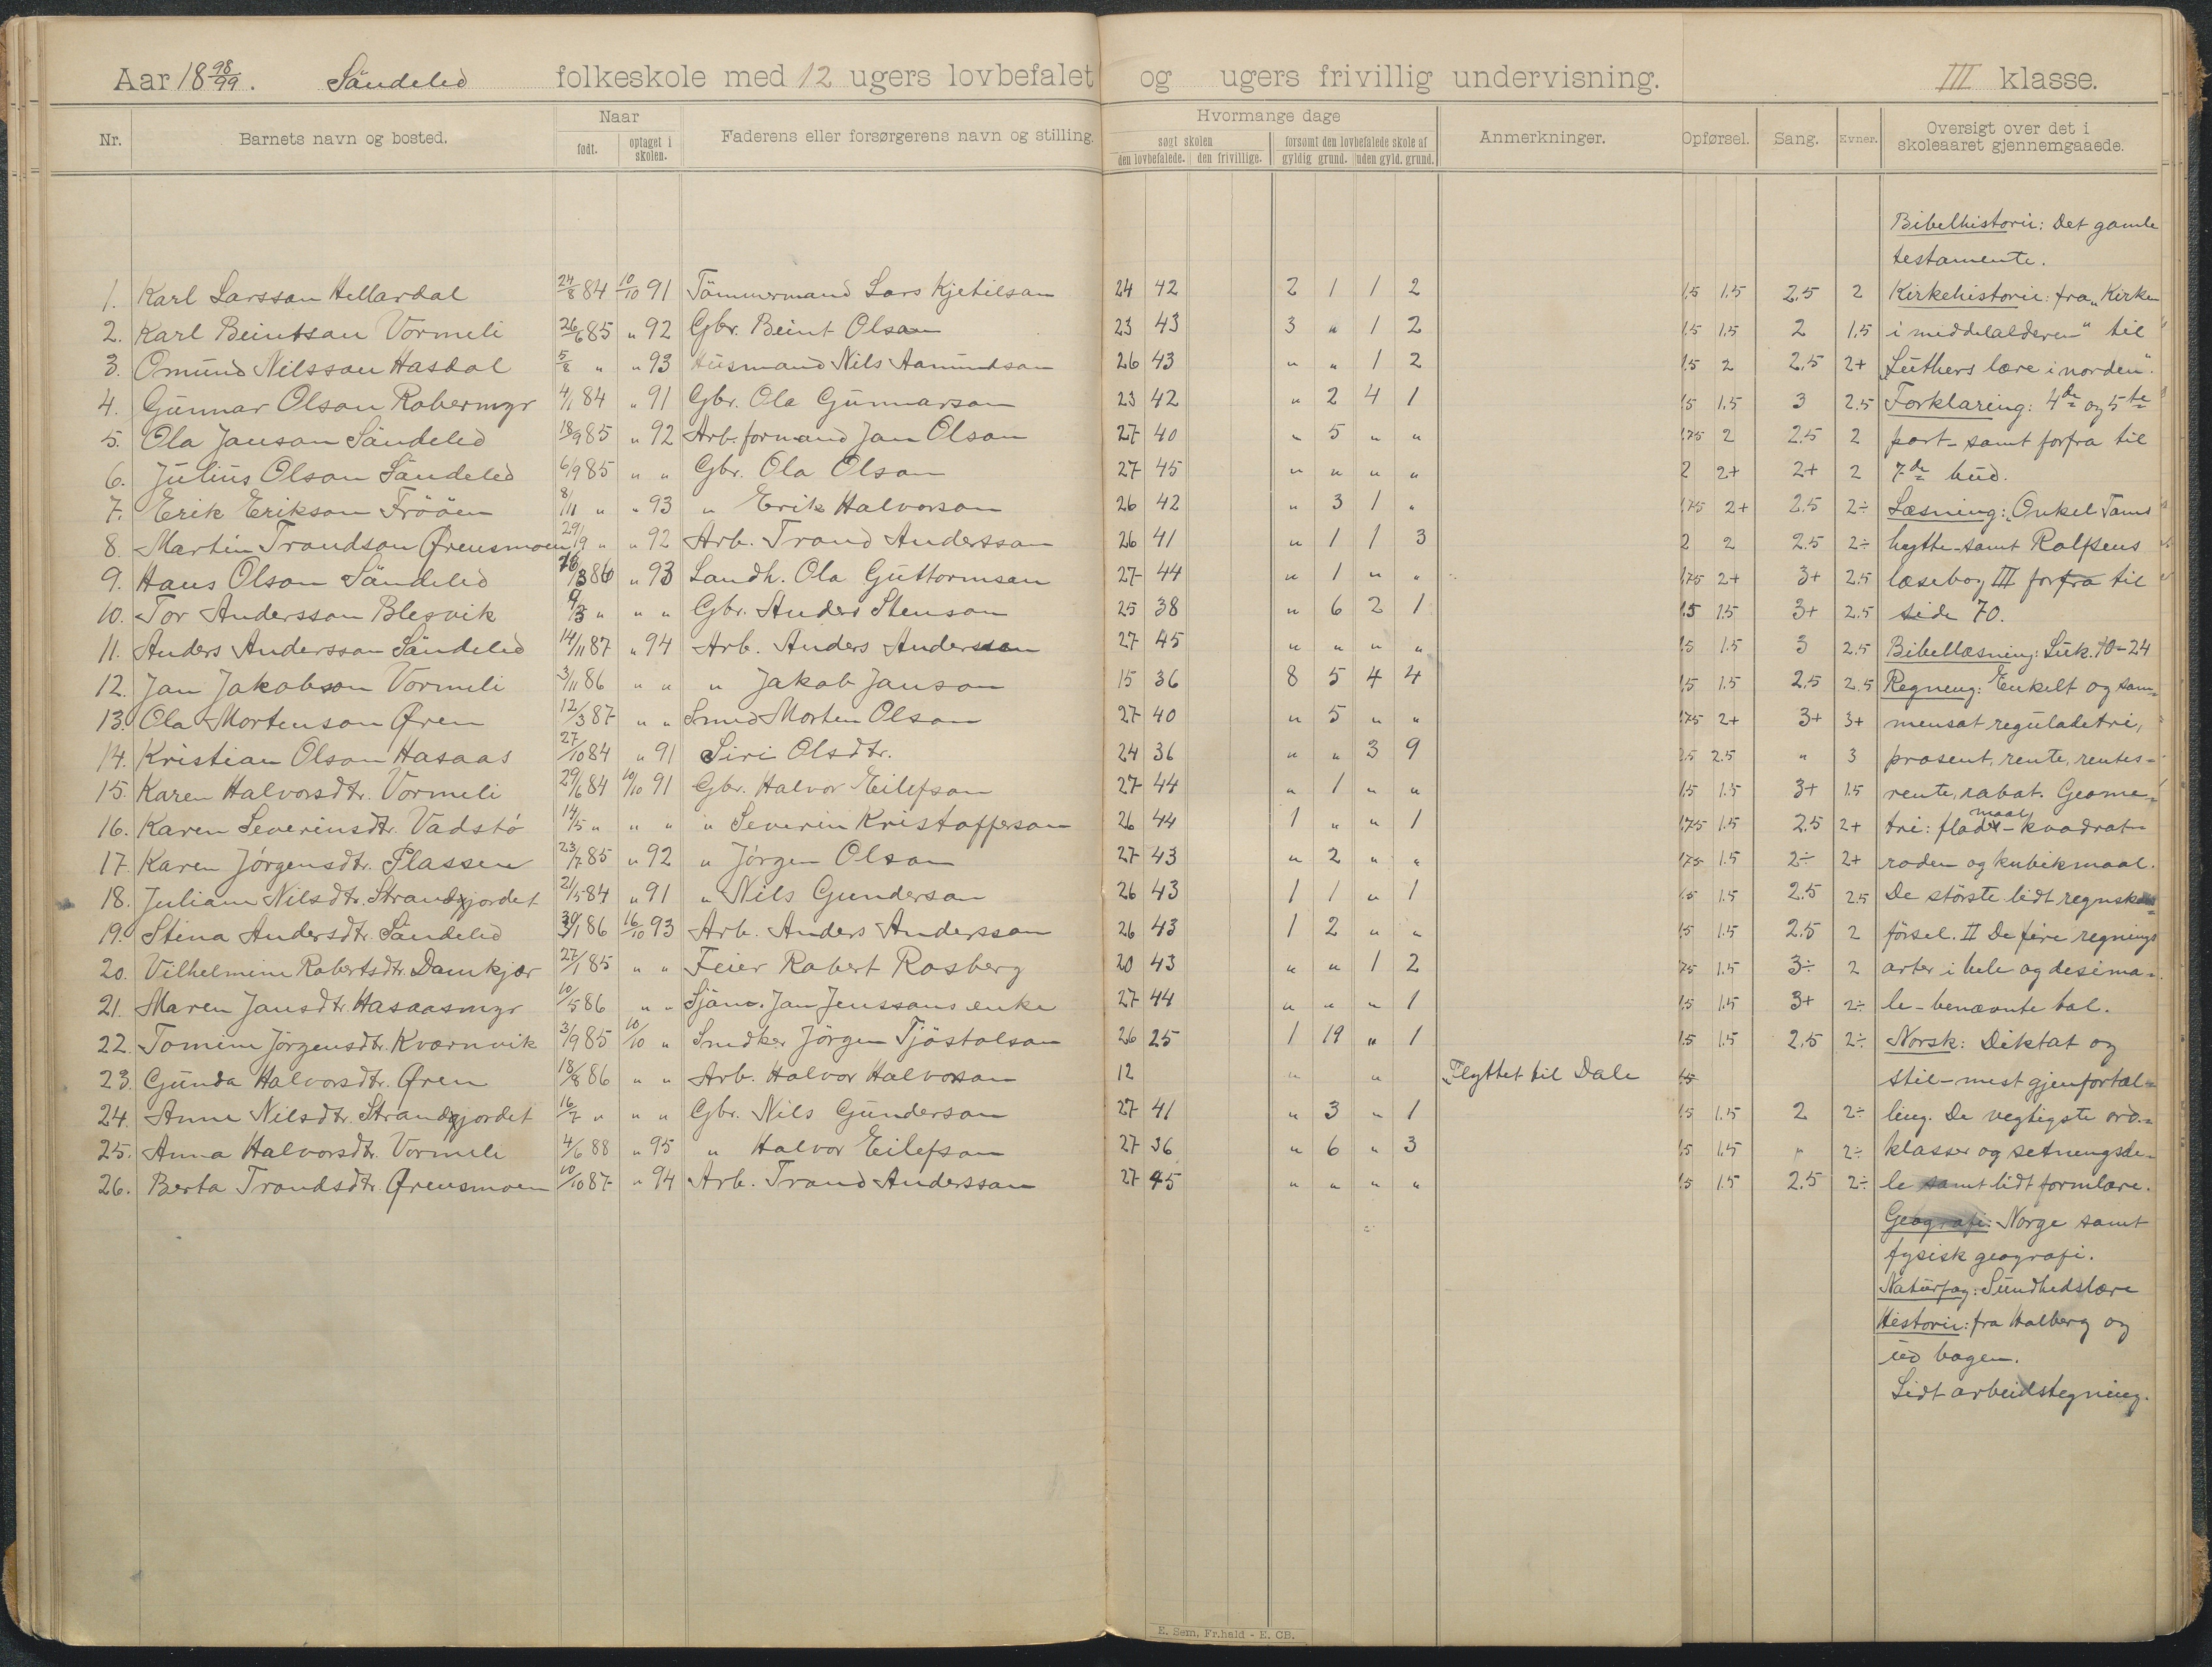 Aar 18 98/99. Søndeled folkeskole med 12 ugers lovbefalet og ugers frivillig undervisning. III klasse.
Nr. Barnets navn og bosted. Naar født. optaget i skolen. Faderens eller forsørgerens navn og stilling. Hvormange dage søgt skolen den lovbefalede. den frivillige. forsømt den lovbefalede skole af gyldig grund. uden gyld. grund. Anmerkninger. Opførsel. Sang. Evner. Oversigt over det i skoleaaret gjennemgaaede.
Bibelhistorie: Det gamle
testamente.
1. Karl Larsson Hellardal 24/8 84 10/10 91 Tömmermand Lars Kjetilson 24 42 2 1 1 2 1.5 1.5 2.5 2 Kirkehistorie: fra „Kirken
2. Karl Beintson Vormeli 26/6 85 " 92 Gbr. Beint Olson 23 43 3 " 1 2 1.5 1.5 2 1.5 i middelalderen" til
3. Omund Nilsson Hasdal 5/8 " " 93 Husmand Nils Aamundson 26 43 " " 1 2 1.5 2 2.5 2+ „Luthers lære i norden".
4. Gunnar Olson Robermyr 4/1 84 " 91 Gbr. Ola Gunnarson 23 42 " 2 4 1 1.5 1.5 3 2.5 Forklaring: 4de og 5te
5. Ola Janson Söndeled 18/9 85 " 92 Arb.formand Jan Olson 27 40 " 5 " " 1.75 2 2.5 2 part- samt forfra til
6. Julius Olson Söndeled 6/9 85 " " Gbr. Ola Olson 27 45 " " " " 2 2+ 2+ 2 7de bud.
7. Erik Erikson Frööen 8/11 " " 93 " Erik Halvorson 26 42 " 3 1 " 1.75 2+ 2.5 2÷ Læsning: „Onkel Toms
8. Martin Trondson Ørensmoen 29/9 " " 92 Arb. Trond Andersson 26 41 " 1 1 3 2 2 2.5 2÷ hytte- samt Rolfsens
9. Hans Olson Söndeled 16/3 86 " 93 Landh. Ola Guttormson 27 44 " 1 " " 1.75 2+ 3+ 2.5 læsebog III forfra til
10. Tor Andersson Blesvik 9/3 " " " Gbr. Anders Stenson 25 38 " 6 2 1 1.5 1.5 3+ 2.5 side 70.
11. Anders Andersson Söndeled 14/11 87 " 94 Arb. Anders Andersson 27 45 " " " " 1.5 1.5 3 2.5 Bibellæsning: Luk. 10-24
12. Jan Jakobson Vormeli 3/11 86 " " " Jakob Janson 15 36 8 5 4 4 1.5 1.5 2.5 2.5 Regning: Enkelt og sam=
13. Ola Mortenson Øren 12/3 87 " " Smed Morten Olson 27 40 " 5 " " 1.75 2+ 3+ 3+ mensat reguladetri,
14. Kristian Olson Hasaas 27/10 84 " 91 Siri Olsdtr. 24 36 " " 3 9 2.5 2.5 " 3 prosent, rente, rentes=
15. Karen Halvorsdtr. Vormeli 29/6 84 10/10 91 Gbr. Halvor Eilefson 27 44 " 1 " " 1.5 1.5 3+ 1.5 rente, rabat. Geome=
16. Karen Severinsdtr. Vadstö 14/5 " " " " Severin Kristofferson 26 44 1 " " 1 1.75 1.5 2.5 2+ tri: flademaal - kvadrat-
17. Karen Jörgensdtr. Plassen 23/7 85 " 92 " Jörgen Olson 27 43 " 2 " " 1.75 1.5 2÷ 2+ roden og kubikmaal.
18. Juliane Nilsdtr. Strandgjordet 21/5 84 " 91 " Nils Gunderson 26 43 1 1 " 1 1.5 1.5 2.5 2.5 De störste lidt regnskabs=
19. Stina Andersdtr. Söndeled 30/1 86 16/10 93 Arb. Anders Andersson 26 43 1 2 " " 1.5 1.5 2.5 2 försel. II De fire regnings
20. Vilhelmine Robertsdtr. Damkjær 27/1 85 " " Feier Robert Rosberg 20 43 " " 1 2 1.75 1.5 3÷ 2 arter i hele og desima=
21. Maren Jansdtr. Hasaasmyr 10/5 86 " " Sjöm. Jan Jenssons enke 27 44 " " " 1 1.5 1.5 3+ 2÷ le- benævnte tal.
22. Tomine Jörgensdtr. Kvernvik 3/9 85 10/10 " Snedker Jörgen Tjöstolson 26 25 1 19 " 1 1.5 1.5 2.5 2÷ Norsk: Diktat og
23. Gunda Halvorsdtr. Øren 18/8 86 " " Arb. Halvor Halvorson 12 " " Flyttet til Dale 1.5 stil- mest gjenfortæl=
24. Anne Nilsdtr. Strandgjordet 16/7 " " " Gbr. Nils Gunderson 27 41 " 3 " 1 1.5 1.5 2 2÷ ling. De vegtigste ord=
25. Anna Halvorsdtr. Vormeli 4/6 88 " 95 " Halvor Eilefson 27 36 " 6 " 3 1.5 1.5 " 2÷ klasser og setningsde-
26. Berta Trondsdtr. Ørensmoen 10/10 87 " 94 Arb. Trond Andersson 27 45 " " " " 1.5 1.5 2.5 2÷ le samt lidt formlære.
Geografi: Norge samt
fysisk geografi.
Naturfag: Sundhedslære
Historie: fra Holberg og
ud bogen.
Lidt arbeidstegning.
E. Sem, Fr.hald - E. CB.